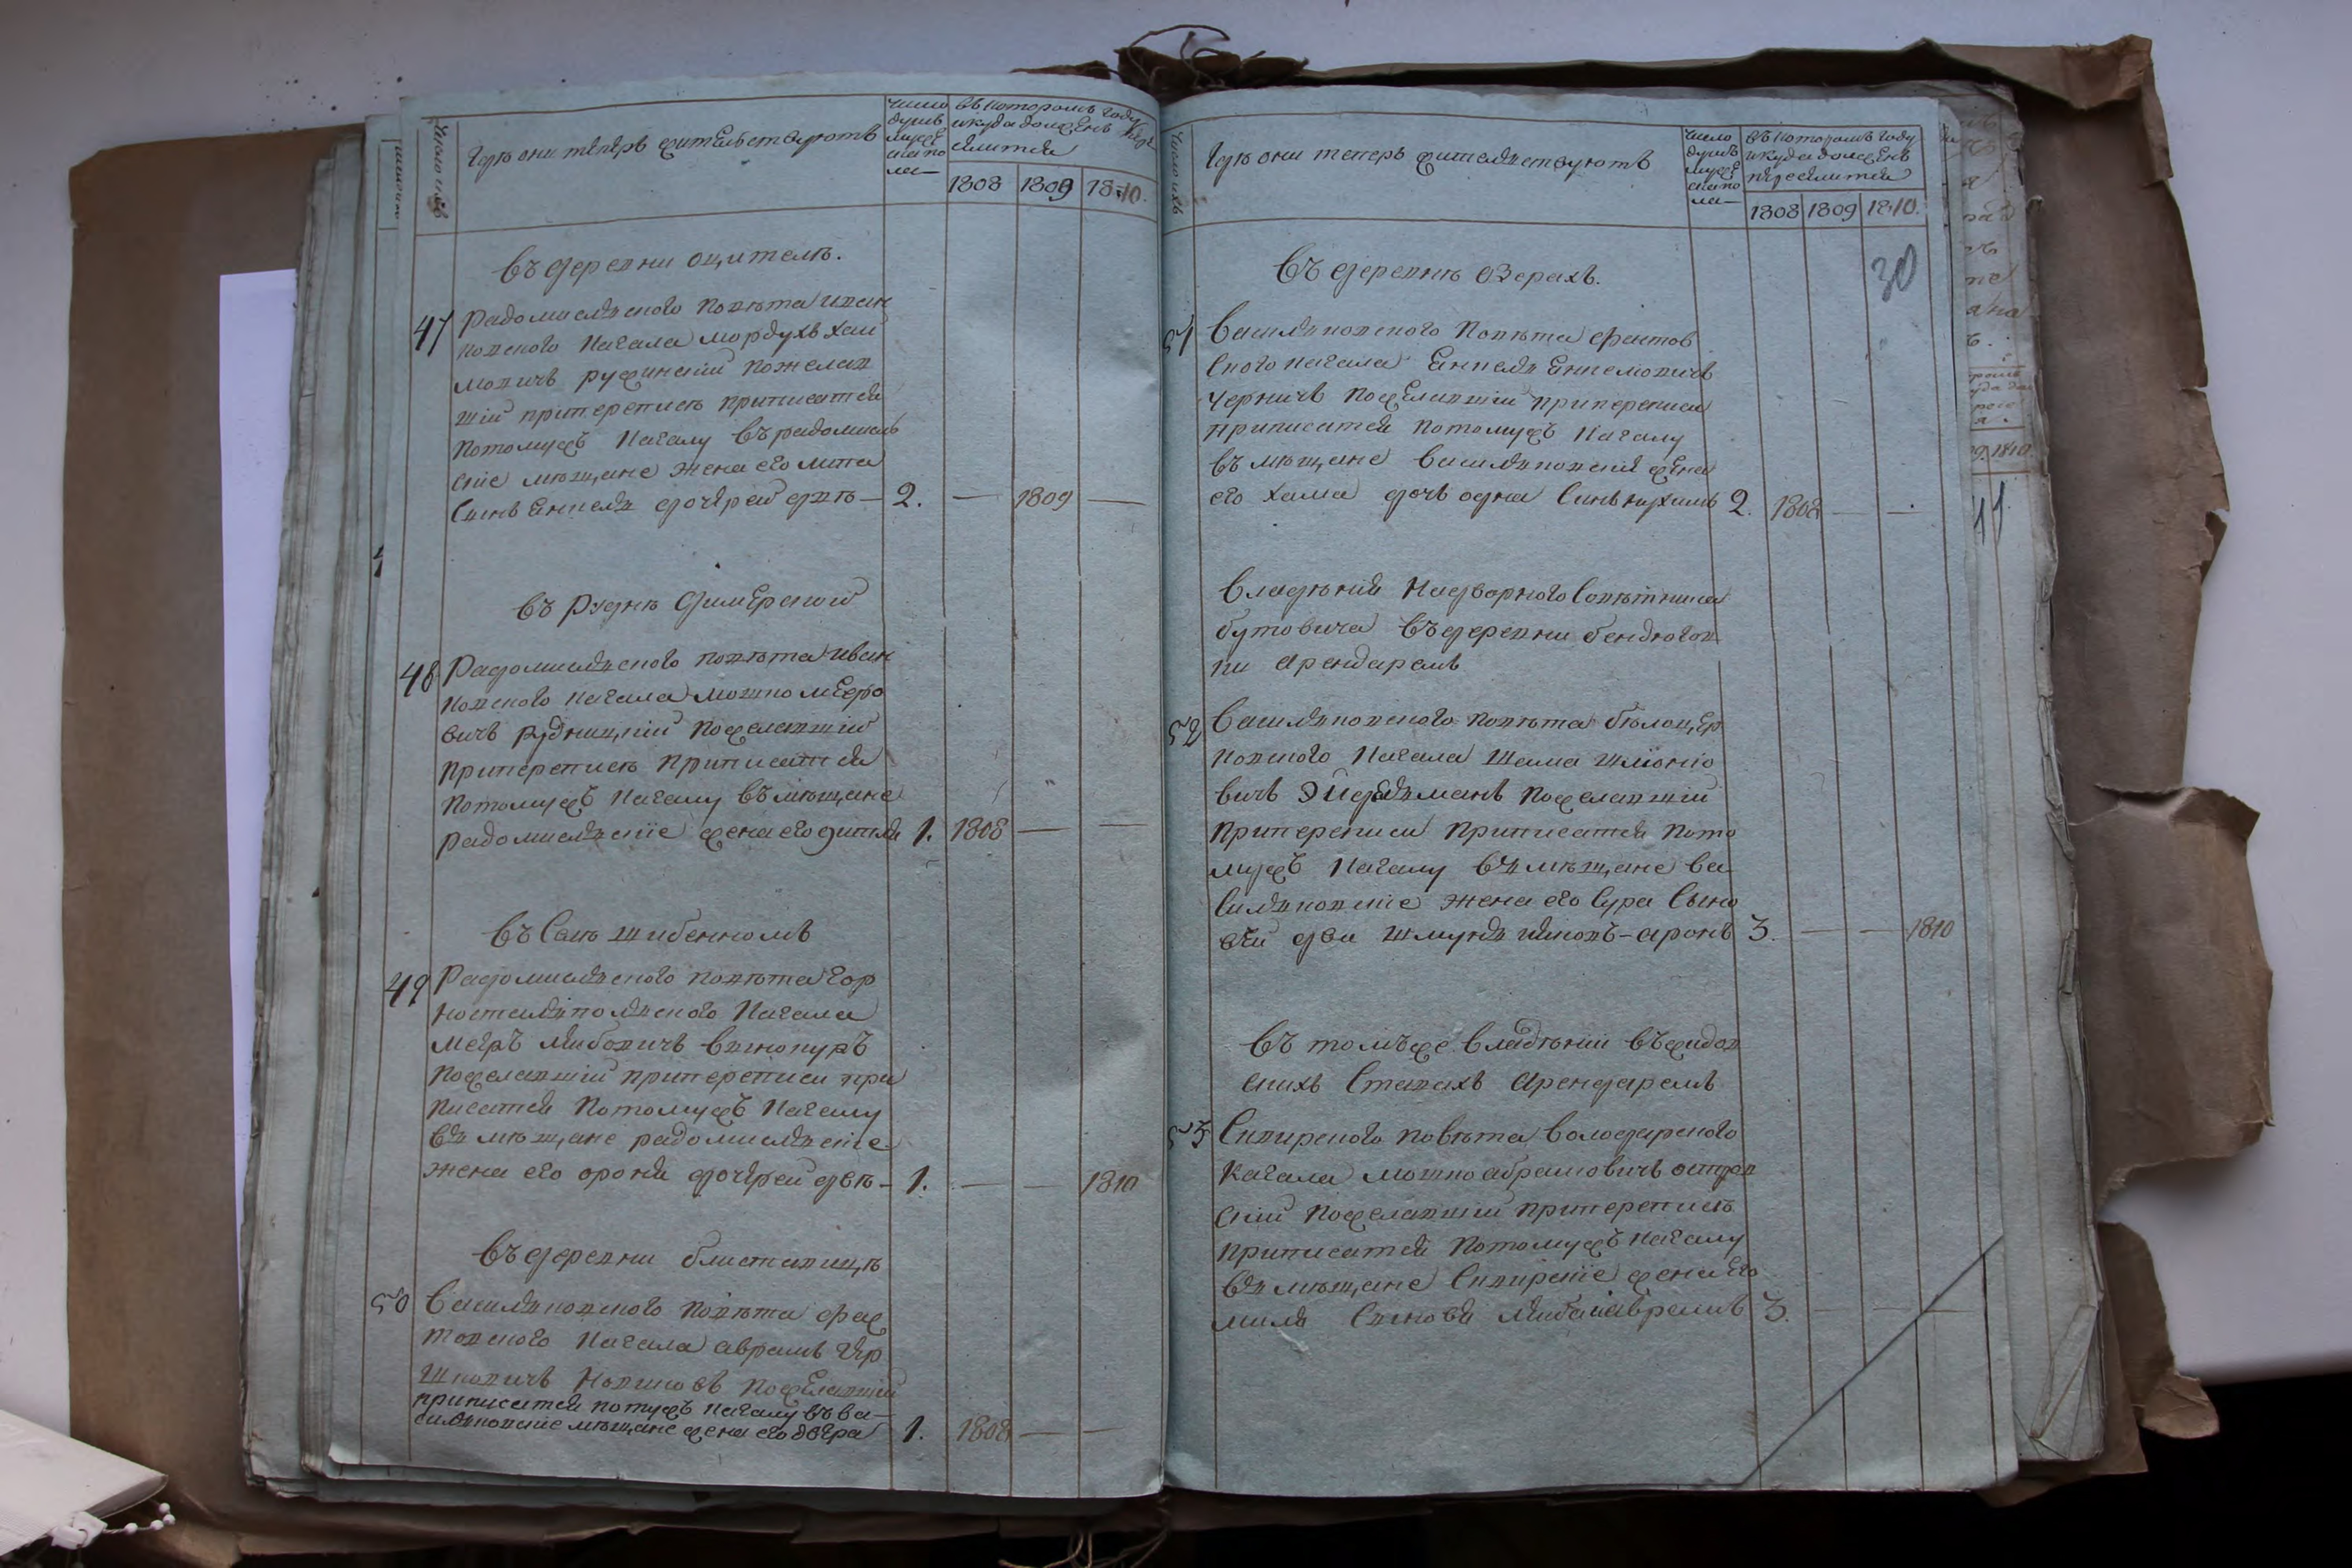 Число ихъ
Где они теперь жителствуютъ
число
душъ
мужес
каго по
ла
въ котором году
и куда должен пере
селится
1808 1809 1810.
въ деревни оцителе.
47 Радомисльского повета иван
ковского кагала мордухъ хаи
мовичъ ружинский пожелав
ший при переписе приписатся
потомужъ кагалу въ радомисль
ские мещане жена его
Синъ Енкель дочерей две — 2. — 1809 —
въ рудне димерской
48 Радомисльского повета иван
ковского кагала мошко мееро
вичъ рудницкий пожелавший
при переписе приписатся
потомужъ кагалу въ мещане
радомисльские жена его 1. 1808 — —
въ селе шибенномъ
49 Радомисльского повета гор
ностальпольского кагала
меер лейбовичъ винокуръ
пожелавший при переписи при
писатся потомужъ кагалу
въ мещане радомисльские
жена его фроня дочерей две — 1. — — 1810
въ деревни блиставице
50 Василковского повета фас
товского кагала аврамъ гер
шковичъ Новиковъ пожелавший
приписатся потужъ кагалу въ ва-
силковские мещане жена его двера 1. 1808 — —
Число ихъ
Где они теперь жительствуютъ
число
душъ
мужес
каго по
ла
въ котором году
и куда должен
переселится
1808 1809 1810.
30
въ деревне озерахъ.
51 Василковского повета фастов
ского кагала Енкель Енкелевичъ
черничъ пожелавший при переписи
приписатся потомужъ кагалу
въ мещане василковские жена
его хама дочь одна Синъ нухимъ 2. 1808 — —
владения Надворного Советника
бутовича въ деревни бендюгов
ки арендаремъ
52 Василковского повета белоцер
ковского кагала Шама шлиомо
вичъ Эйдельманъ пожелавший
при переписи приписатся пото
мужъ кагалу въ мещане ва
силковские жена его Сура Сыно
вей два шмуль ицковъ-аронъ 3. — — 1810
въ томъже владении въ жидов
скихъ Ставахъ арендаремъ
53 Сквирского повета володарского
кагала мошко абрамовичъ остров
ский пожелавший при переписе
приписатся потомужъ кагалу
въ мещане Сквирские жена его
миля Синовя лейба и аврамъ 3. — — —